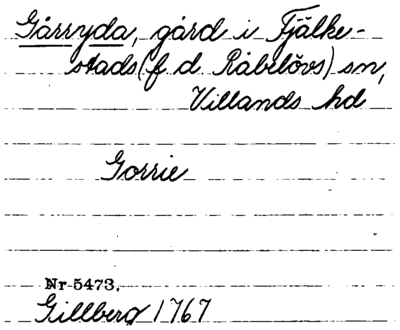 Gårryda, gård i Fjälke-
stads (f d Råbelövs) sn,
Villands hd
Gorrie
Nr 5473.
Gillberg 1767